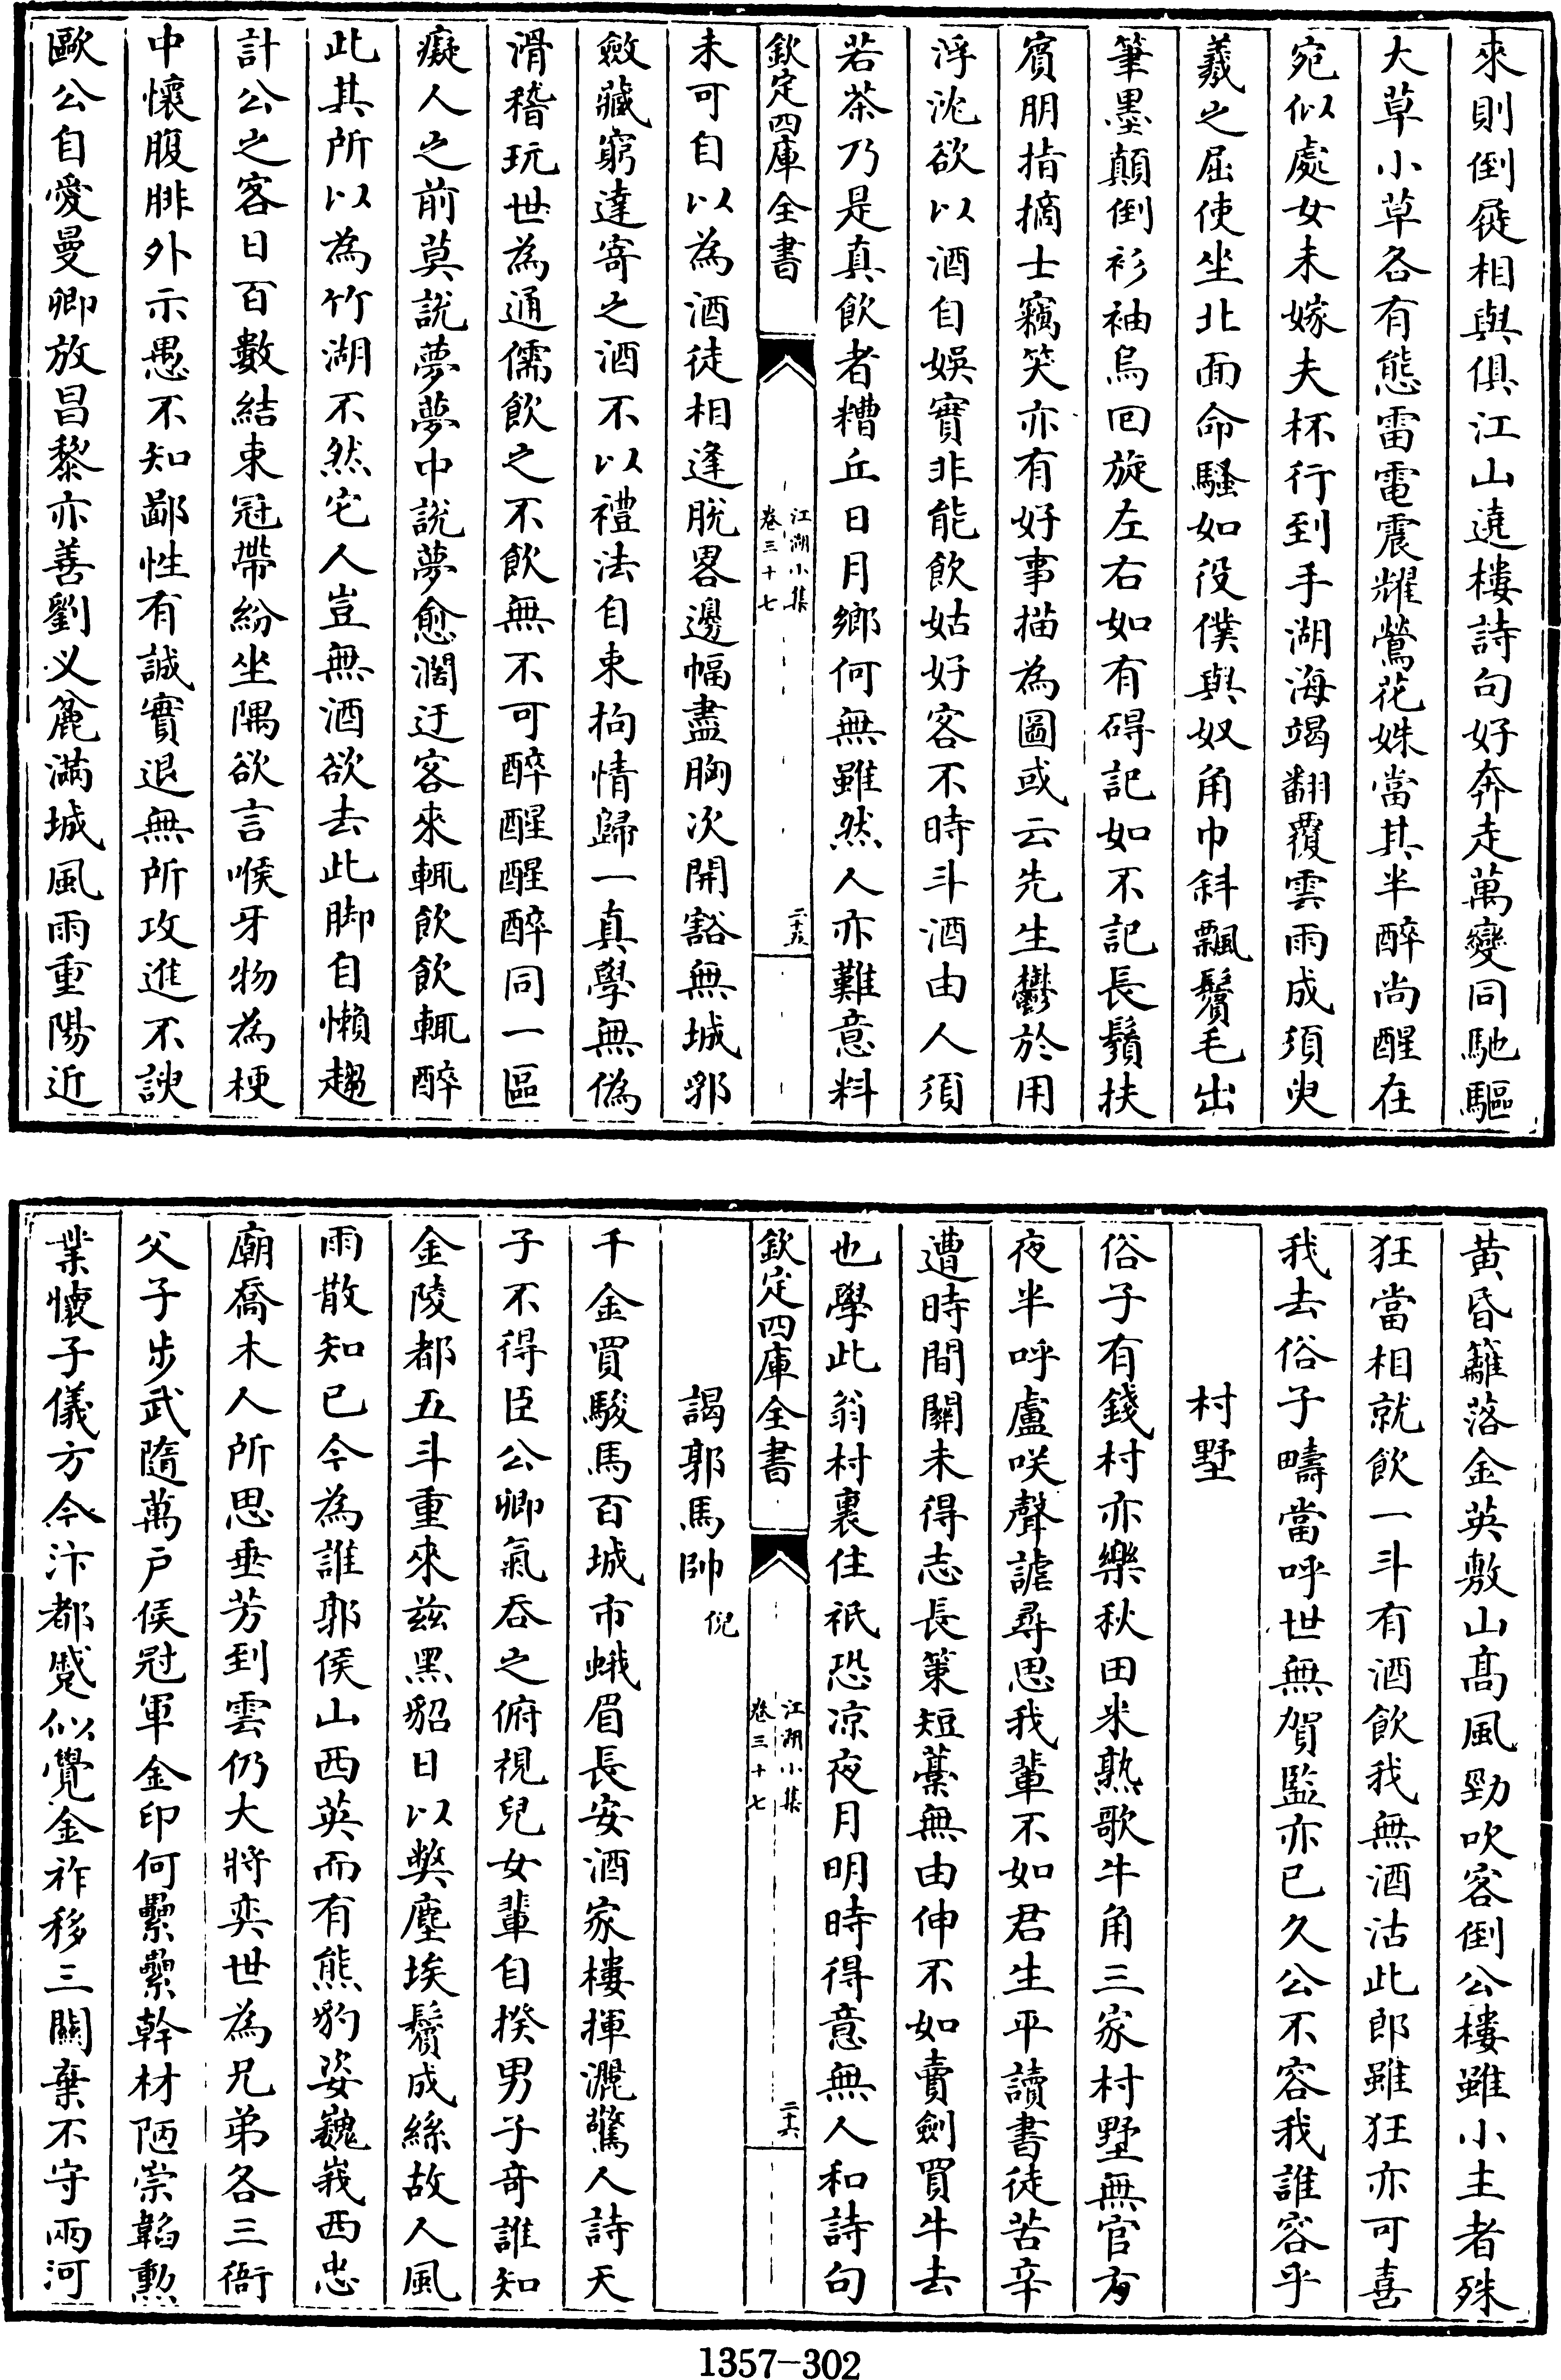 來則倒屣相與俱江山遶樓詩句好奔走萬變同馳驅
大草小草各有態雷電震耀鶯花姝當其半醉尚醒在
宛似處女未嫁夫杯行到手湖海竭翻覆雲雨成須臾
羲之屈使坐北面命騷如役僕與奴角巾斜飄鬢毛出
筆墨顛倒衫袖烏回旋左右如有碍記如不記長鬚扶
賓朋指摘士竊笑亦有好事描為圖或云先生鬱於用
浮沈欲以酒自娛實非能飲姑好客不時斗酒由人須
若茶乃是真飲者糟丘日月鄉何無雖然人亦難意料
欽定四庫全書
江湖小集
卷三十七
二十五
未可自以為酒徒相逢脫畧邊幅盡胸次開豁無城郛
斂藏窮達寄之酒不以禮法自束拘情歸一真學無偽
滑稽玩世為通儒飲之不飲無不可醉醒醒醉同一區
癡人之前莫說夢夢中說夢愈濶迂客來輒飲飲輒醉
此其所以為竹湖不然宅人豈無酒欲去此脚自懶趨
計公之客日百數結束冠帶紛坐隅欲言喉牙物為梗
中懷腹腓外示愚不知鄙性有誠實退無所攻進不諛
歐公自愛曼卿放昌黎亦善劉义麄滿城風雨重陽近
黃昏籬落金英敷山髙風勁吹客倒公樓雖小主者殊
狂當相就飲一斗有酒飲我無酒沽此郎雖狂亦可喜
我去俗子疇當呼世無賀監亦已久公不容我誰容乎
村墅
俗子有錢村亦樂秋田米熟歌牛角三家村墅無官府
夜半呼盧咲聲謔尋思我輩不如君生平讀書徒苦辛
遭時間關未得志長策短藁無由伸不如賣劍買牛去
也學此翁村裏住祇恐凉夜月明時得意無人和詩句
欽定四庫全書
江湖小集
卷三十七
二十六
謁郭馬帥倪
千金買駿馬百城市蛾眉長安酒家樓揮灑驚人詩天
子不得臣公卿氣吞之俯視兒女輩自揆男子奇誰知
金陵都五斗重來兹黑貂日以獘塵埃鬢成絲故人風
雨散知已今為誰郭侯山西英而有熊豹姿巍峩西忠
廟喬木人所思垂芳到雲仍大將奕世為兄弟各三衙
父子步武隨萬户侯冠軍金印何纍纍幹材陋崇韜勲
業懷子儀方今汴都蹙似覺金祚移三關棄不守兩河
1357-302